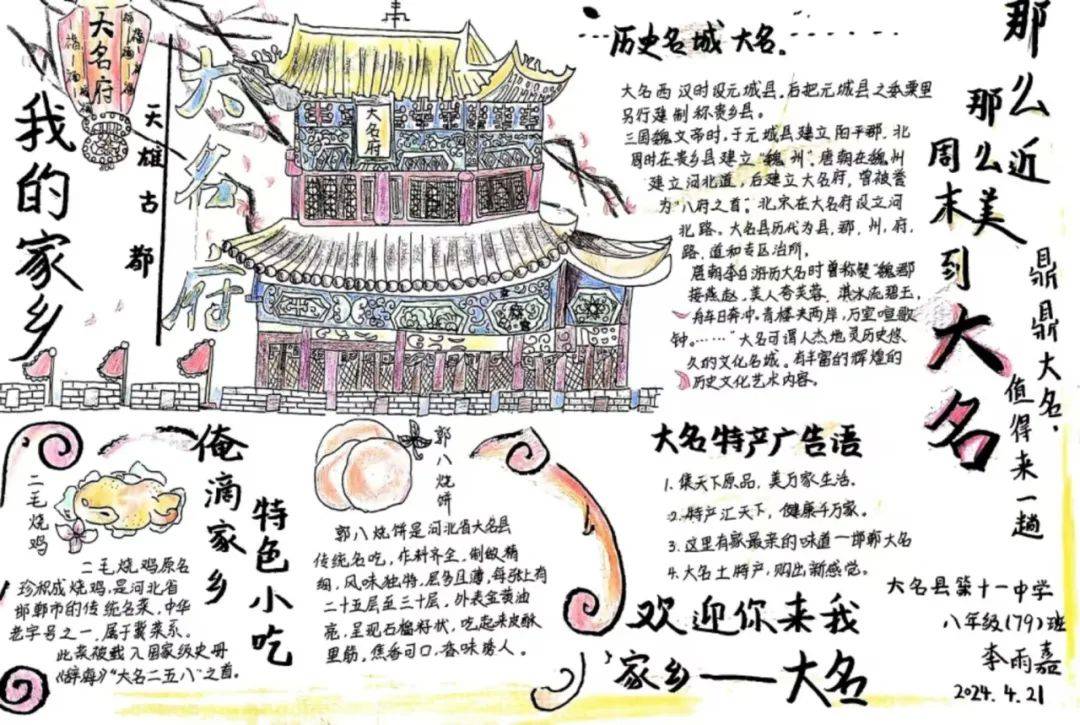 我的家乡
大名府
天雄古都
大名府
大名府
历史名城 大名.
大名西汉时设元城县,后把元城县之
另行建制称贵乡县。
三国魏文帝时,于元城县建立阳平郡,北
周时在贵乡县建立“魏州”,唐朝在魏州
建立河北道,后建立大名府,曾被誉
为“八府之首”,北宋在大名府设立河
北路。大名县历代为县,郡,州,府,
路、道和专区治所。
唐朝李白游历大名时曾称赞“魏郡
接燕赵,美人夸芙蓉。淇水流碧玉,
舟车日奔冲,青楼夹两岸,万室喧歌
钟。……”大名可谓人杰地灵历史悠
久的文化名城。有丰富的辉煌的
历史文化艺术内容。
那么近
那么美
周末到
大名
鼎鼎大名,
值得来一趟
俺滴家乡
特色小吃
二毛烧鸡
二毛烧鸡原名
珍积成烧鸡,是河北省
邯郸市的传统名菜,中华
老字号之一,属于冀菜系。
此菜被载入国家级史册
《辞海》“大名二五八”之首。
郭八烧饼
郭八烧饼是河北省大名县
传统名吃,作料齐全,制做精
细,风味独特,层多且薄,每张上有
二十五层至三十层,外表金黄油
亮,呈现石榴籽状,吃起来皮酥
里筋,焦香可口,香味诱人。
大名特产广告语
1.集天下原品,美万家生活。
2.特产汇天下,健康千万家。
3.这里有家最亲的味道一邯郸大名
4.大名土特产,购出新感觉。
欢迎你来我
家乡——大名
大名县第十一中学
八年级(79)班
李雨嘉
2024.4.21